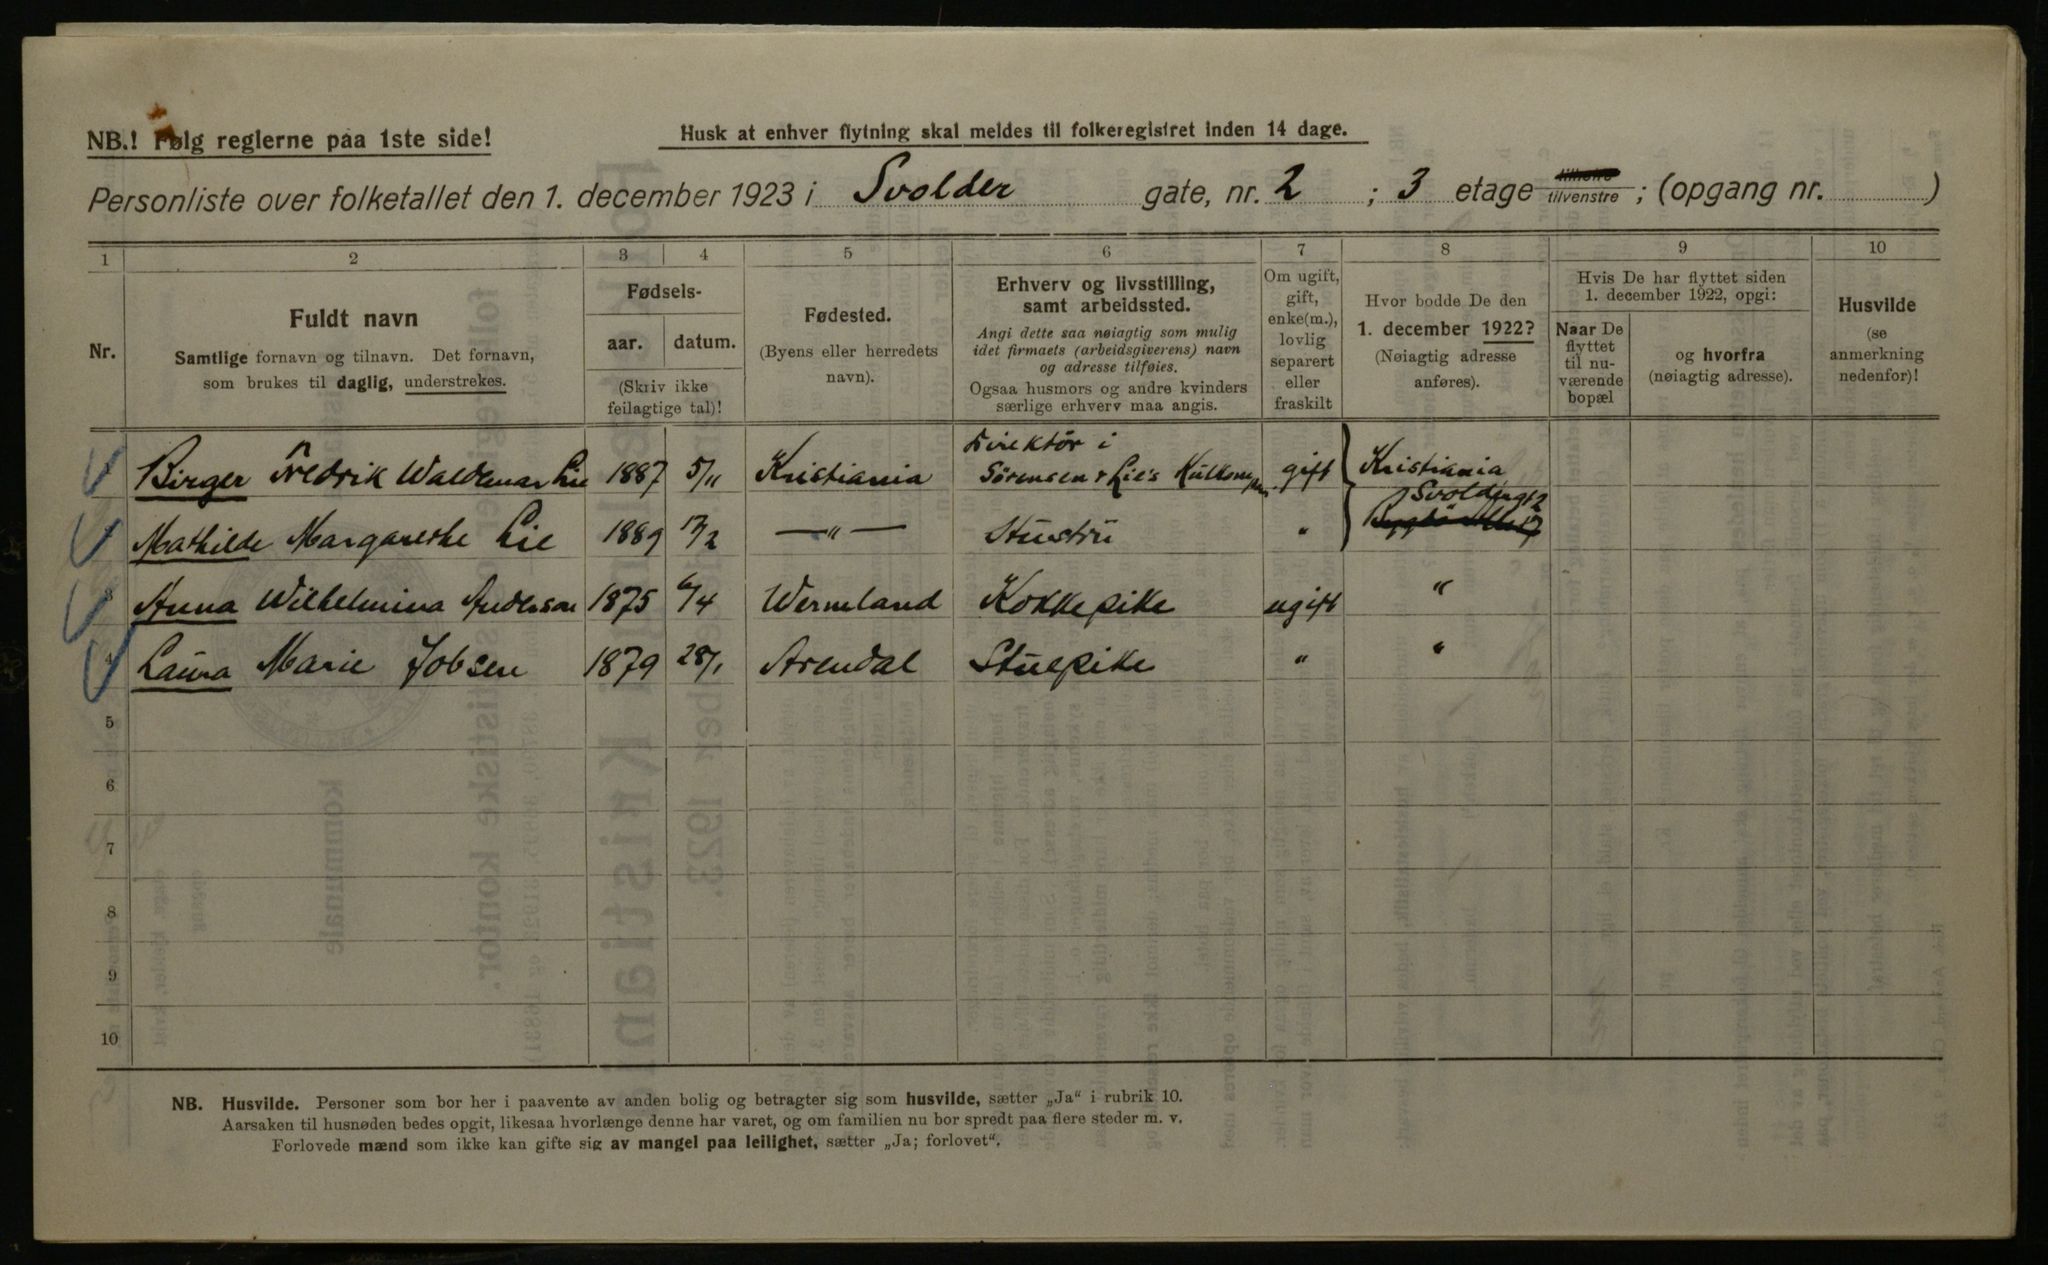 NB.! Følg reglerne paa 1ste side!
Husk at enhver flytning skal meldes til folkeregistret inden 14 dage.
Personliste over folketallet den 1. december 1923 i Svolder gate, nr. 2 ; 3 etage tilhøire tilvenstre ; (opgang nr. )
1 2 3 4 5 6 7 8 9 10
Nr.
Fuldt navn
Samtlige fornavn og tilnavn. Det fornavn,
som brukes til daglig, understrekes.
Fødsels-
aar. datum.
(Skriv ikke
feilagtige tal)!
Fødested.
(Byens eller herredets
navn).
Erhverv og livsstilling,
samt arbeidssted.
Angi dette saa nøiagtig som mulig
idet firmaets (arbeidsgiverens) navn
og adresse tilføies.
Ogsaa husmors og andre kvinders
særlige erhverv maa angis.
Om ugift,
gift,
enke(m.),
lovlig
separert
eller
fraskilt
Hvor bodde De den
1. december 1922?
(Nøiagtig adresse
anføres).
Hvis De har flyttet siden
1. december 1922, opgi:
Naar De
flyttet
til nu-
værende
bopæl
og hvorfra
(nøiagtig adresse).
Husvilde
(se
anmerkning
nedenfor)!
Birger Fredrik Waldemar Lie 1887 5/11 Kristiania Direktör i
Sörensen & Lie's gift Kristiania
Svoldergt 2
Mathilde Margarethe Lie 1889 —"— Hustru "
3 Anna Wilhelmina Anderson 1875 6/4 Wermland Kokkepike ugift "
4 Laura Marie Jobsen 1879 28/1 Arendal Stuepike " "
5
6
7
8
9
10
NB. Husvilde. Personer som bor her i paavente av anden bolig og betragter sig som husvilde, sætter „Ja“ i rubrik 10.
Aarsaken til husnøden bedes opgit, likesaa hvorlænge denne har varet, og om familien nu bor spredt paa flere steder m. v.
Forlovede mænd som ikke kan gifte sig av mangel paa leilighet, sætter „Ja; forlovet“.